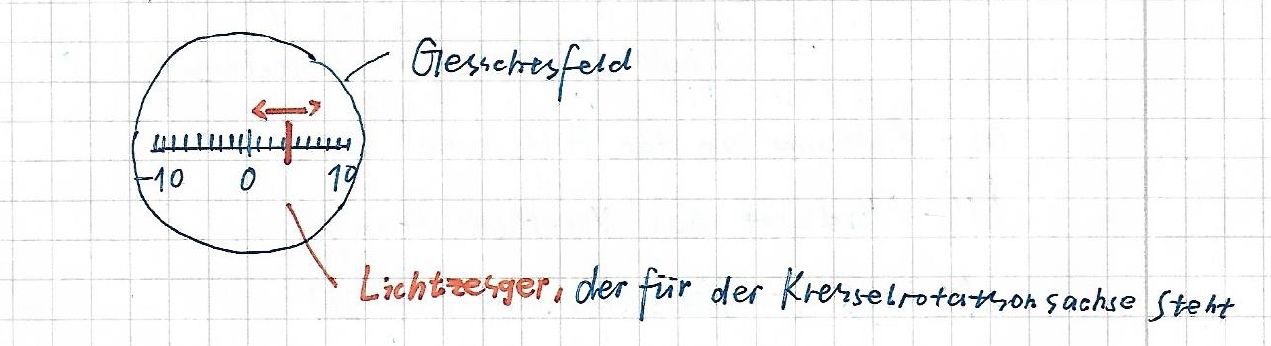 Gesichtsfeld
-10 0 10
Lichtzeiger, der für der Kreiselrotationsachse steht